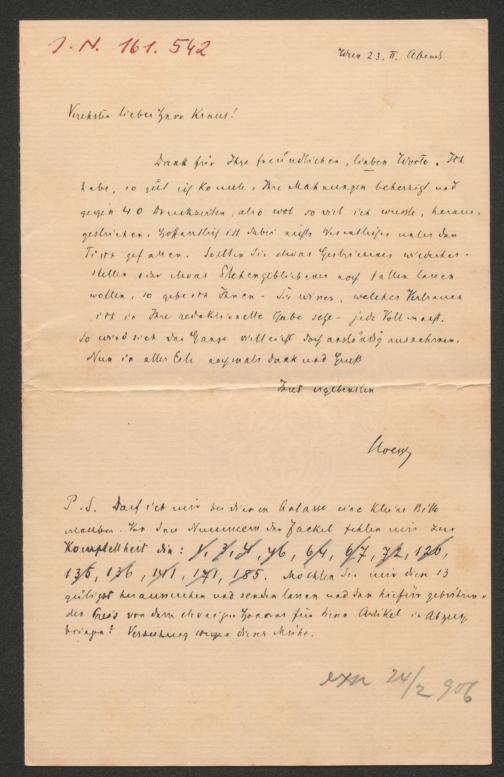 J. N. 161.542
Wien 23. II. Abend
Verehrter lieber Herr Kraus!
Dank für Ihre freundlichen, lieben Worte. Ich
habe, so gut ich konnte, Ihre Mahnungen beherzigt und
gegen 40 Druckzeilen, also wol so viel ich wusste, heraus-
gestrichen. Hoffentlich ist dabei nichts Wesentliches unter den
Tisch gefallen. Sollten Sie etwas Gestrichenes wiederher-
stellen oder etwas Stehengebliebenes noch fallen lassen
wollen, so gebe ich Ihnen - Sie wissen, welches Vertrauen
ich in Ihre redaktionelle Gabe setze - jede Vollmacht.
So wird sich das Ganze vielleicht doch anständig ausnehmen.
Nun in aller Eile nochmals Dank und Gruß
Ihres ergebensten
P. S. Darf ich mir bei diesem Anlasse eine kleine Bitte
erlauben. Von den Nummern der Fackel fehlen mir zur
Komplettheit die: 1, 3, 4, 46, 64, 67, 72, 126,
135, 136, 141, 171, 185. Möchten Sie mir diese 13
gütigst heraussuchen und senden lassen und den hiefür gebühren-
den Preis von dem etwaigen Honorar für Artikel in Abzug
bringen? Verzeihung wegen dieser Mühe.
exp 24/2 906